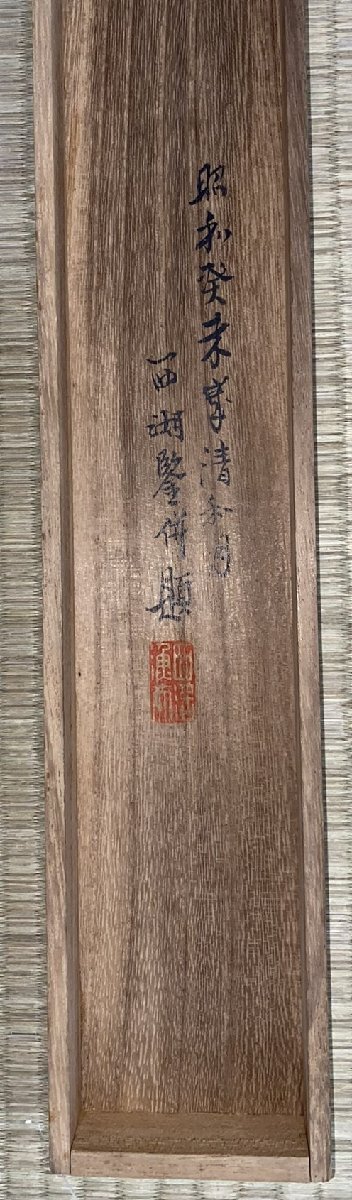 昭和癸未歳清和月
西湖鑒併題